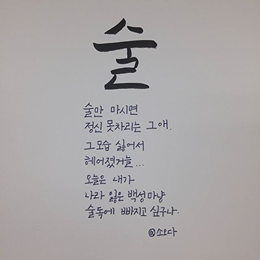 술
술만 마시면
정신 못차리는 그애.
그모습 싫어서
헤어졌거늘...
오늘은 내가
나라 잃은 백성마냥
술독에 빠지고 싶구나.
@소요다